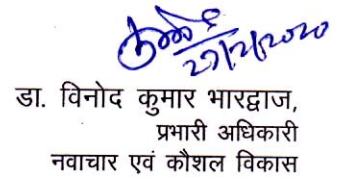 27/2/2020
डा. विनोद कुमार भारद्वाज,
प्रभारी अधिकारी
नवाचार एवं कौशल विकास